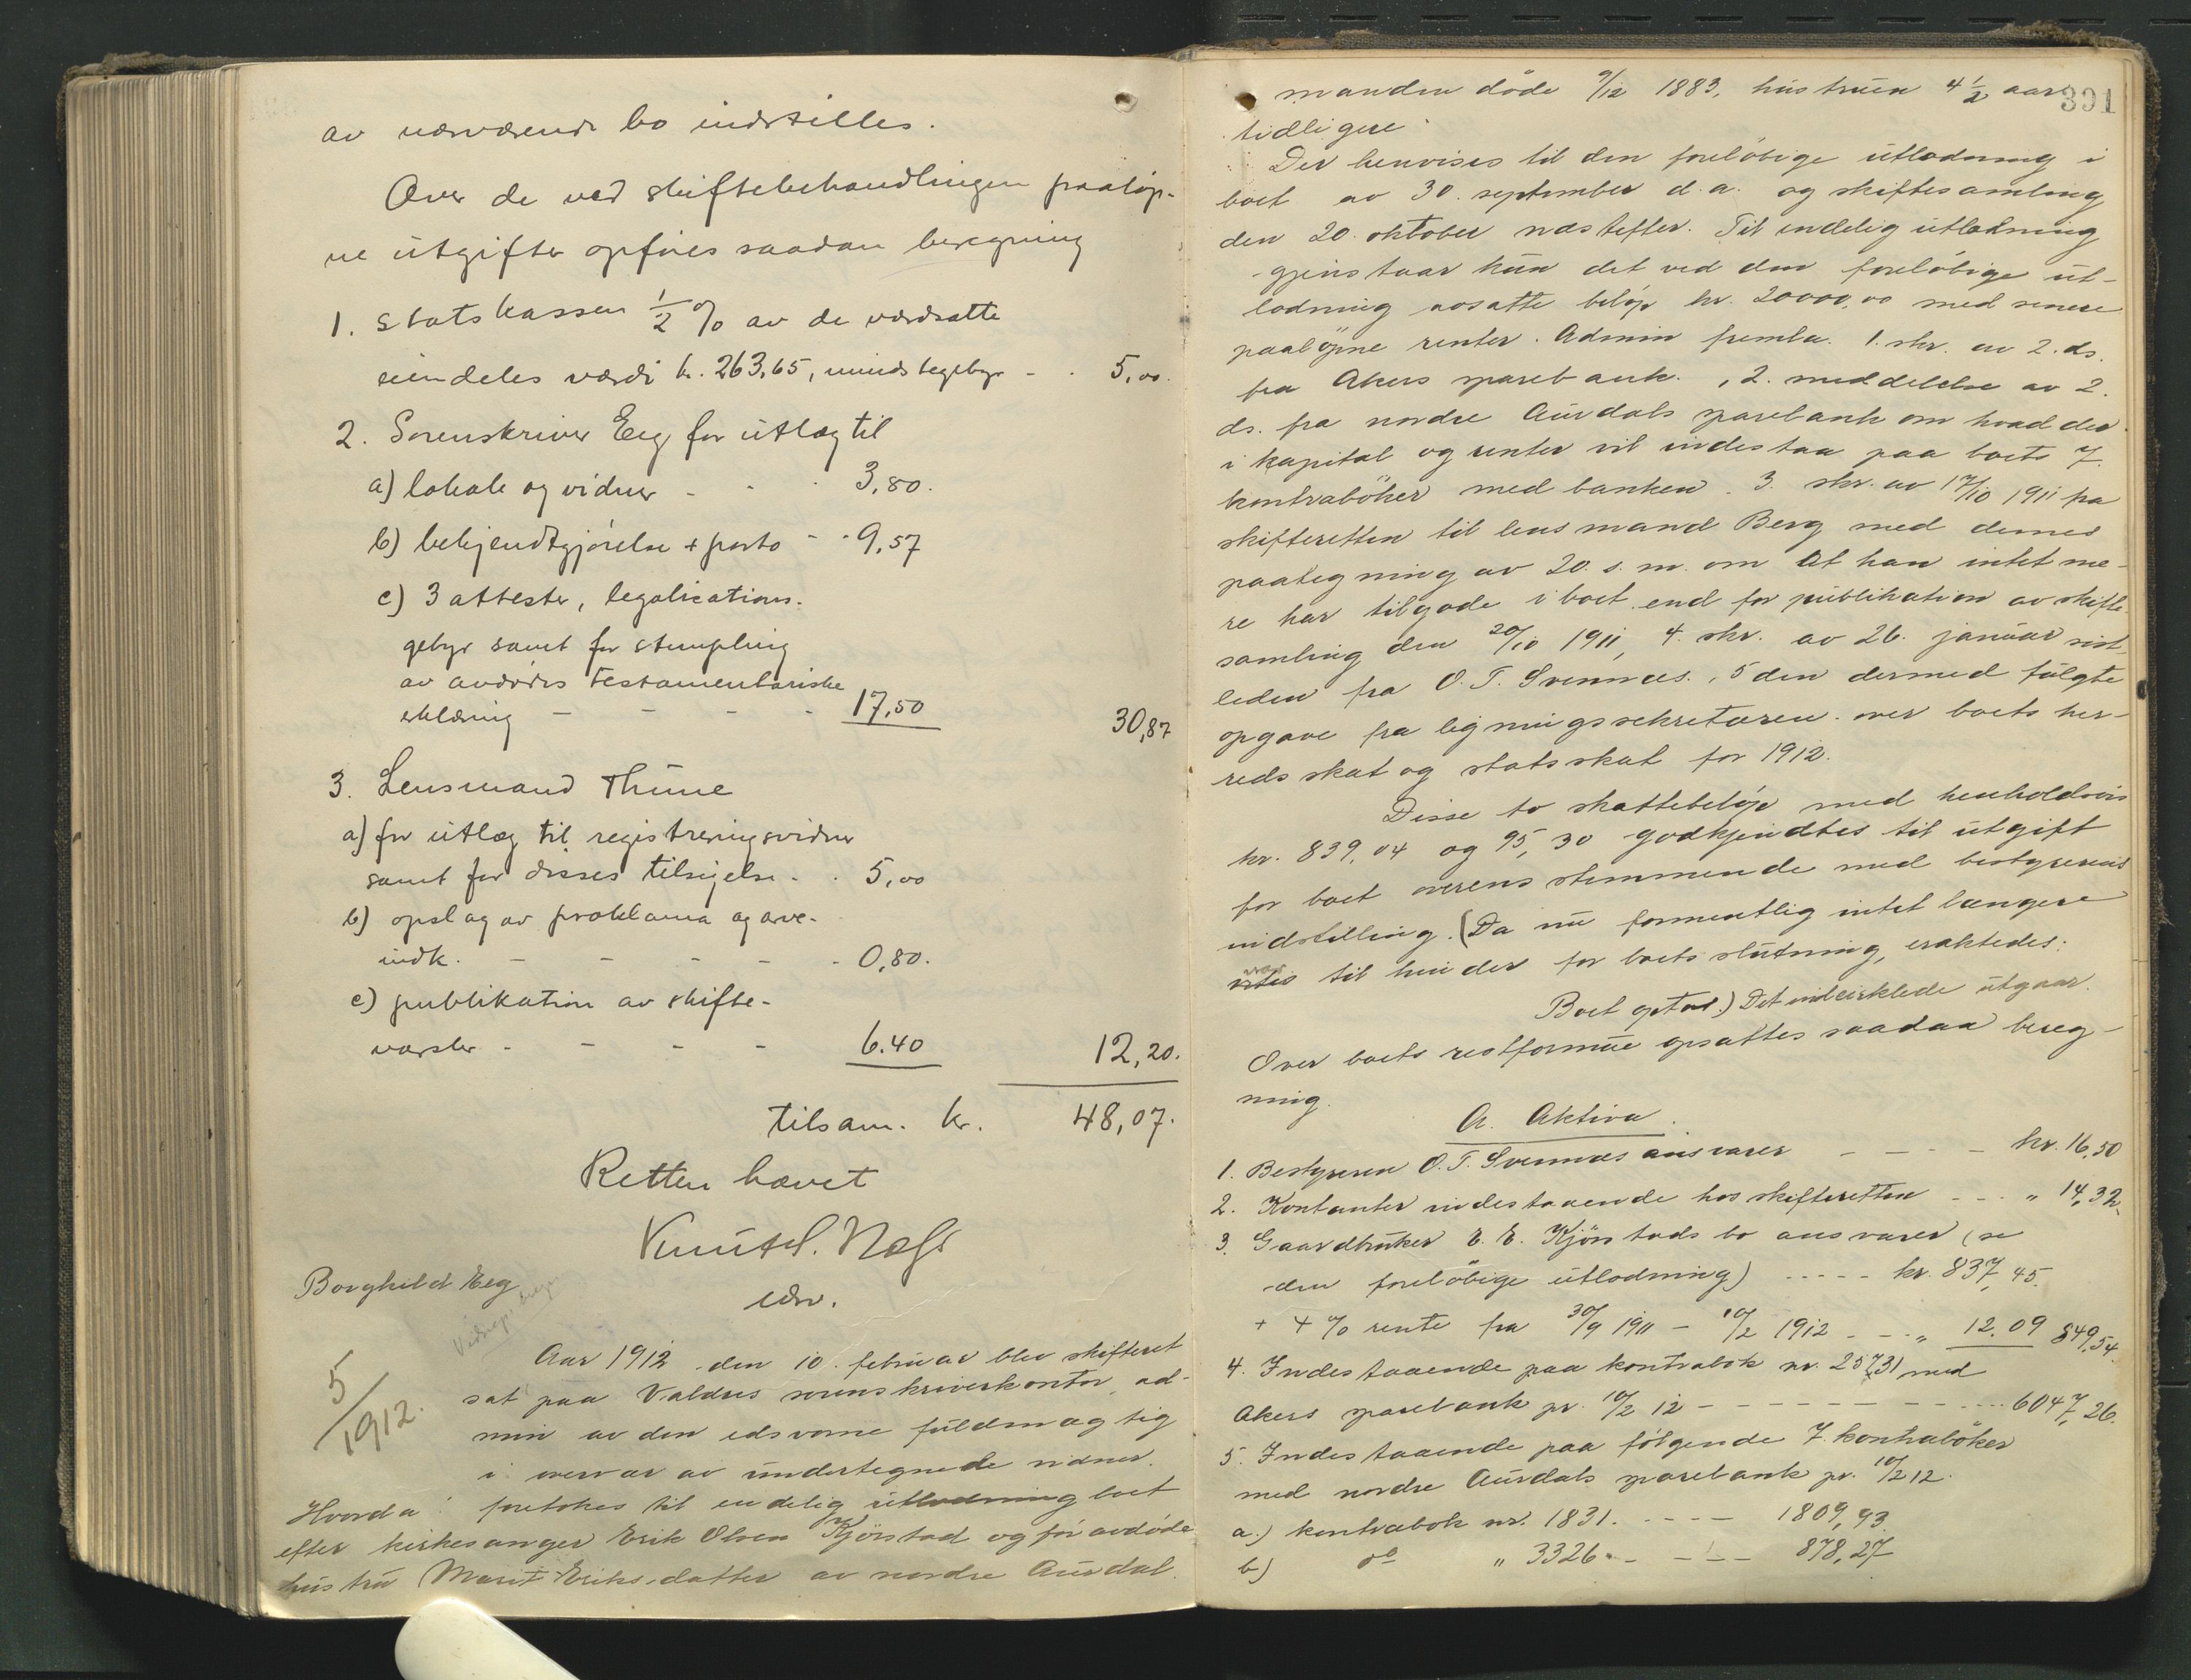 av nærværende bo indstilles.
Over de ved skiftebehandlingen paaløp-
ne utgifter opføres saadan beregning
1. Statskassen ½ % av de værdsatte
eiendeles værdi kr. 263,65, mindstegebyr - - 5,00.
2. Sorenskriver Eeg for utlæg til
a) lokale og vidner - - - 3,80.
b) bekjendtgjørelse + porto - - 9,57
c) 3 attester, legalisations-
gebyr samt for stempling
av avdødes testamentariske
erklæring - - - - 17,50 30,87
3. Lensmand Thune
a) for utlæg til registreringsvidner
samt for disses tilsigelse - - 5,00
b) opslag av proklama og arve-
indk. - - - - - 0,80.
c) publikation av skifte-
varsler - - - - 6.40 12,20.
tilsam. kr. 48,07.
Retten hævet
Knut
edsv.
Borghild Eeg
5/1912.
Aar 1912 den 10. februar blev skifteret
sat paa Valdres sorenskriverkontor, ad-
min av den edsvorne fuldmægtig
i overvær av undertegnede vidner.
Hvorda: foretokes til endelig utlodning boet
efter kirkesanger Erik Olsen Kjörstad og för avdöde
hustru Marit Eriksdatter av nordre Aurdal.
391
manden döde 9/12 1883, hustruen 4 ½ aar
tidligere.
Der henvises til den forelöbige utlodning i
boet av 30. september d.a. og skiftesamling
den 20. oktober næstefter. Til endelig utlodning
gjenstaar kun det ved den forelöbige ut-
lodning avsatte belöp kr. 20000,00 med senere
paalöpne renter. Admin fremla. 1. skr. av 2. ds.
fra Akers sparebank., 2. meddelelse av 2.
ds. fra nordre Aurdals sparebank om hvad der
i kapital og renter vil indestaa paa boets 7
kontraböker med banken. 3. skr. av 17/10 1911 fra
skifteretten til lensmand Berg med dennes
paategning av 20. s.m. om at han intet me-
re har tilgode i boet end for publikation av skifte-
samling den 20/10 1911, 4. skr. av 26. januar sist-
leden fra O. T. Svennæs., 5 den dermed fulgte
opgave fra ligningssekretæren over boets her-
redsskat og statsskat for 1912.
Disse to skattebelöp med henholdsvis
kr. 839,04 og 95,30 godkjendtes til utgift
for boet overensstemmende med bestyrerens
indstilling. (Da nu formentlig intet længere
var til hinder for boets slutning, eraktedes:
Boet optat.) Det indcirklede utgaar.
Over boets restformue opsattes saadan bereg-
ning.
A. Aktiva.
1. Bestyreren O. T. Svennæs ansvarer - - - - kr. 16,50
2. Kontanter indestaaende hos skifteretten - - - " 14,32
3. Gaardbruker E. E. Kjörstads bo ansvarer (se
den forelöbige utlodning) - - - - - kr. 837,45.
+ 4 % rente fra 30/9 1911 - 10/2 1912 - - " 12.09 849,54.
4. Indestaaende paa kontrabok nr. 25731 med
Akers sparebank pr. 10/2 12 - - - - - - - - - - 6047,26.
5. Indestaaende paa følgende 7 kontraböker
med nordre Aurdals sparebank pr. 10/2 12.
a.) kontrabok nr. 1831. - - - - 1809,93
b) do " 3326 - - - - 878,27